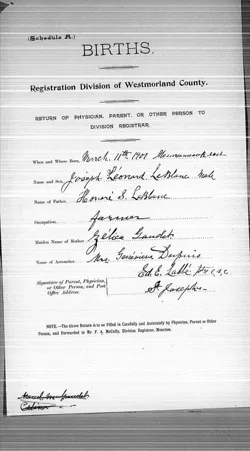 (Schedule A.)
BIRTHS.
Registration Division of Westmorland County.
RETURN OF PHYSICIAN, PARENT, OR OTHER PERSON TO
DIVISION REGISTRAR.
When and Where Born, March 11th 1901 Memramcook
Name and Sex, Joseph Leonard LeBlanc Male
Name of Father, Honoré S. LeBlanc
Occupation, farmer
Maiden Name of Mother, Gaudet
Name of Accoucher, Mrs. Geneviève Dupuis
Signature of Parent, Physician,
or Other Person, and Post
Office Address.
Ed. E. Labbé ptre c.s.c.
St. Joseph
NOTE.—The Above Return is to be Filled in Carefully and Accurately by Physician, Parent or Other
Person, and Forwarded to Mr. F. A. McCully, Division Registrar, Moncton.